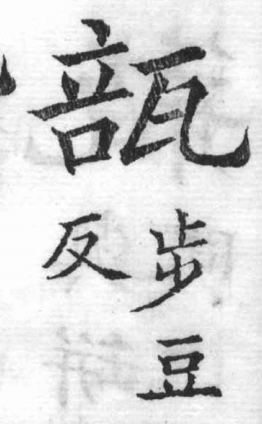 瓿
步豆
反